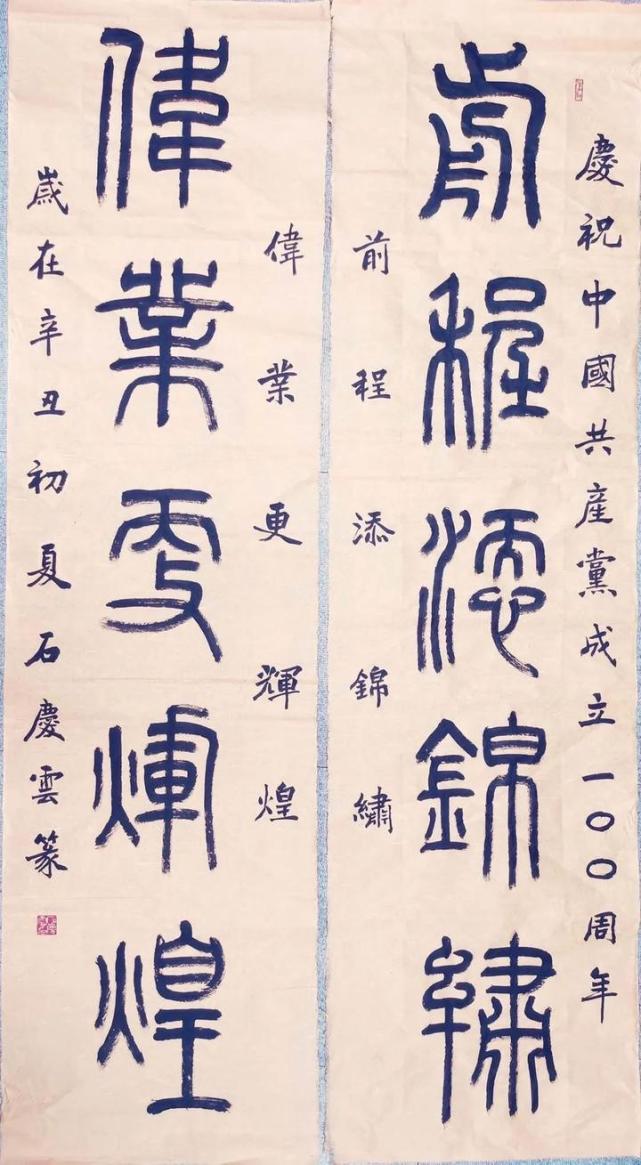 慶祝中國共産黨成立一〇〇周年
前程添錦繡
前程添錦繡
偉業更輝煌
偉業更煇煌
歲在辛丑初夏石慶雲篆